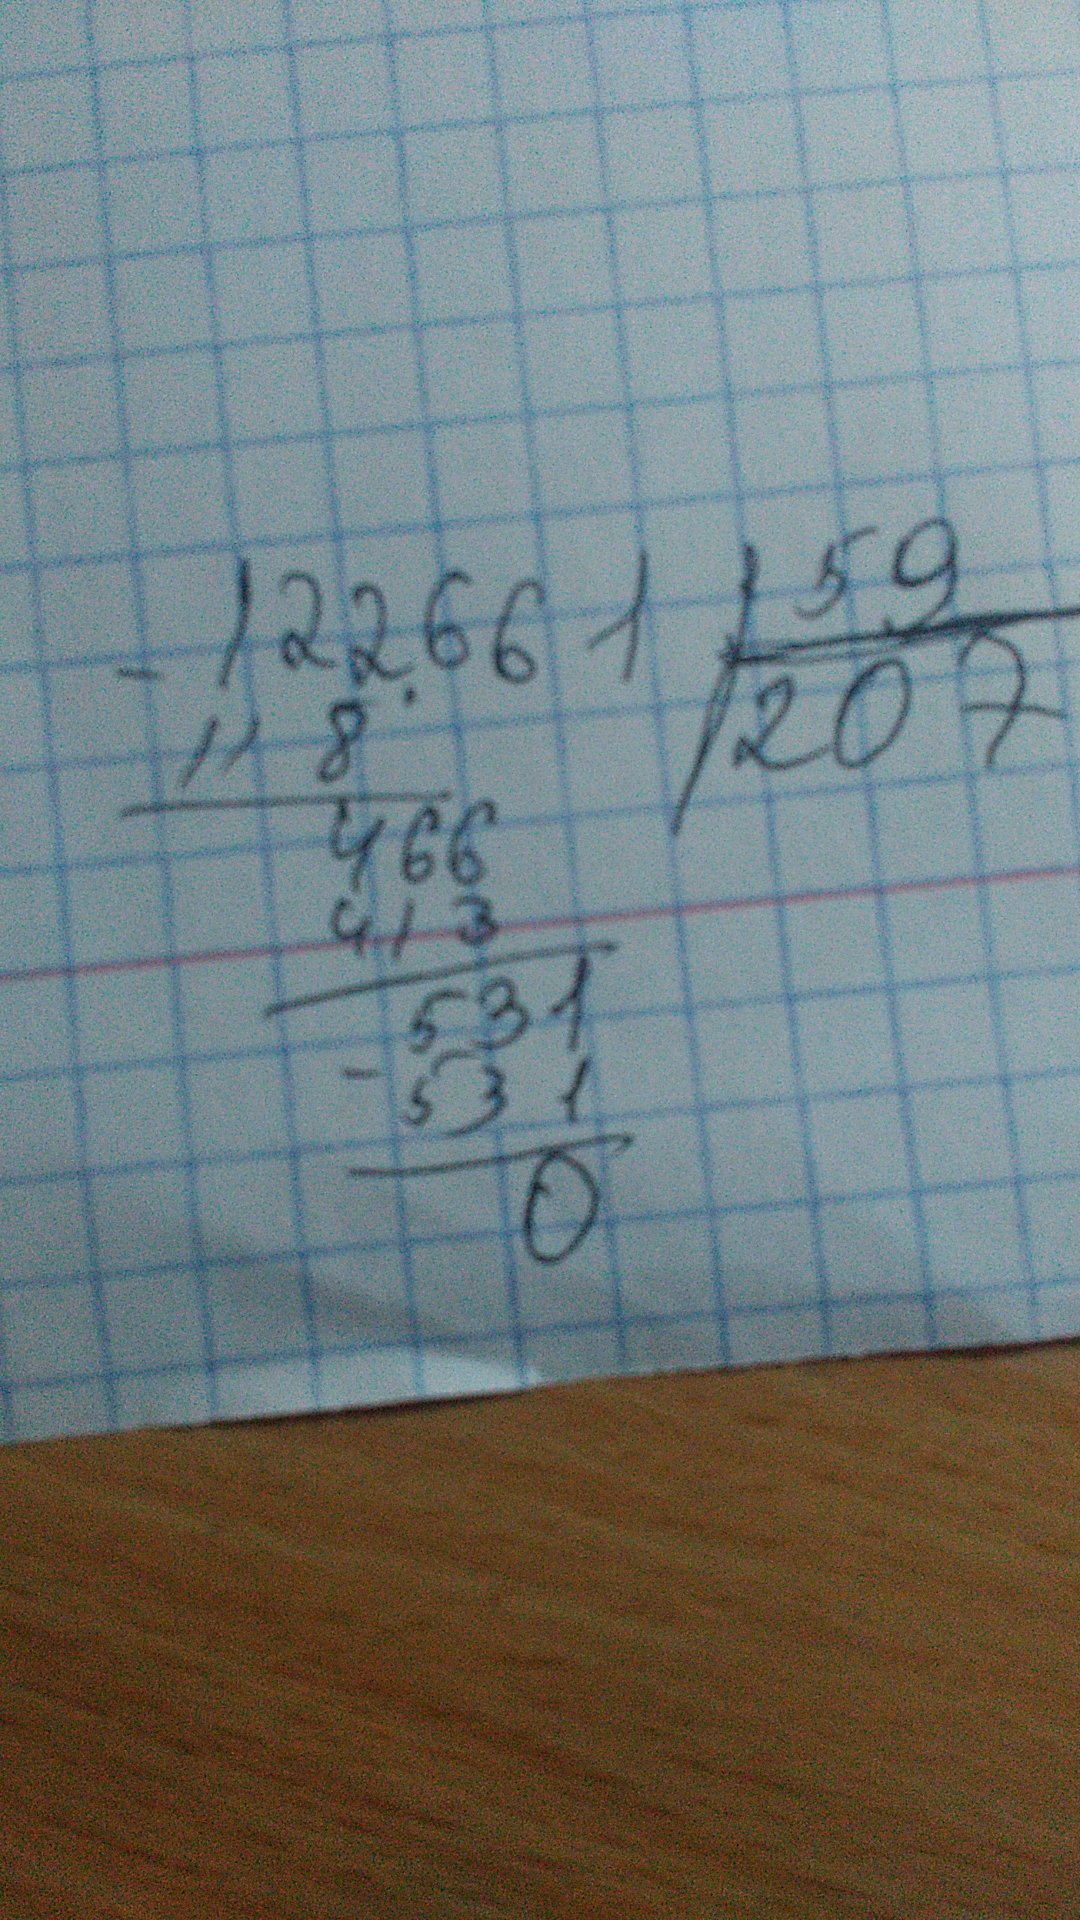 - 122661 | 59
118 | 207
466
413
531
- 531
0